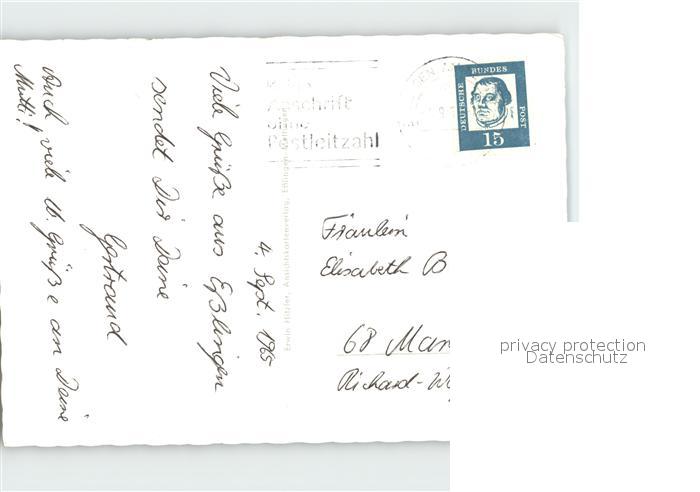 4. Sept. 1965
Viele Grüße aus Eßlingen
sendet Dir Deine
Gertraud
Auch viele lb. Grüße an Deine
Mutti!
Erwin Hitzler, Ansichtskartenverlag, Eßlingen
Anschrift
ohne
Postleitzahl
DEUTSCHE
BUNDES
POST
15
Fräulein
Elisabeth B
68 Man
Richard-W
privacy protection
Datenschutz